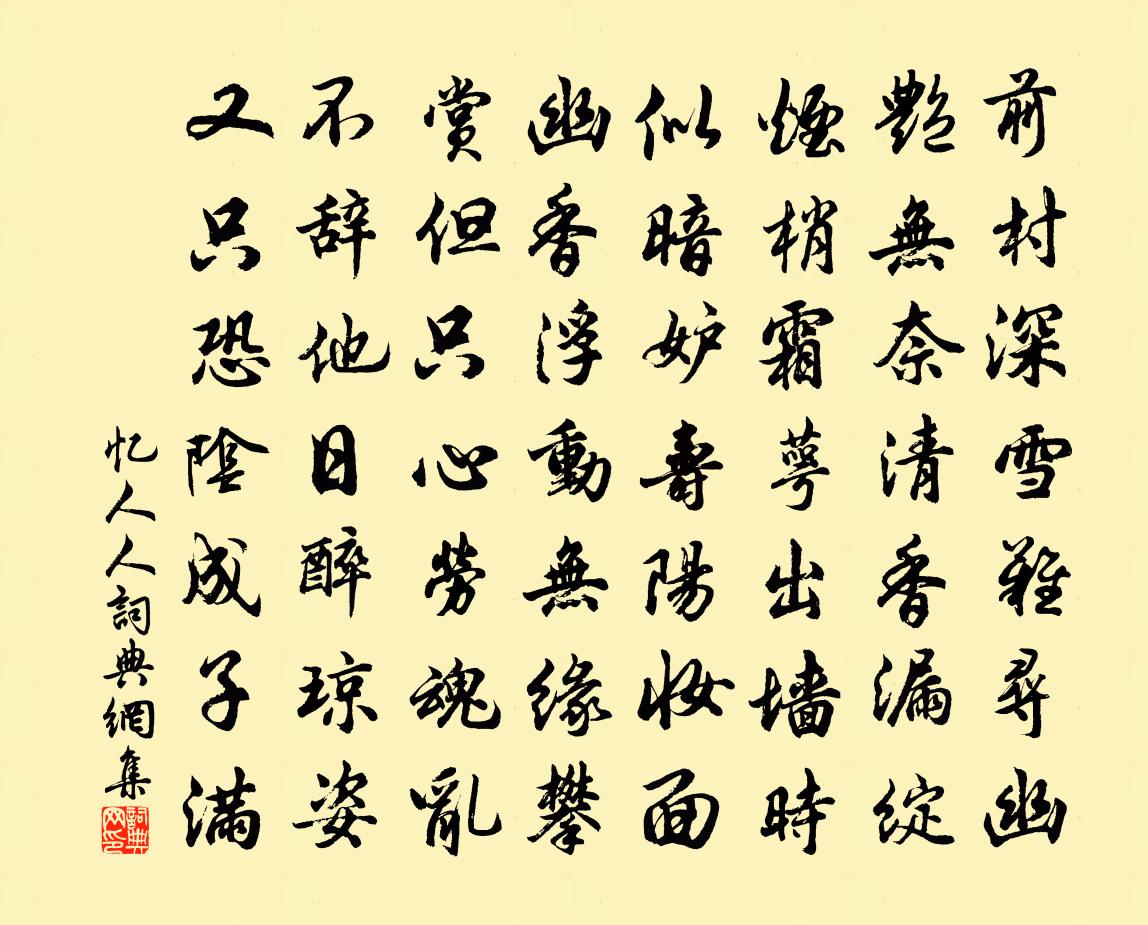 前村深雪難尋幽
艷無奈清香漏綻
煙梢霜萼出墙時
似暗妒壽陽妝面
幽香浮動無緣攀
賞但只心勞魂亂
不辞他日醉琼姿
又只恐陰成子滿
忆人人詞典網集
詞典網印